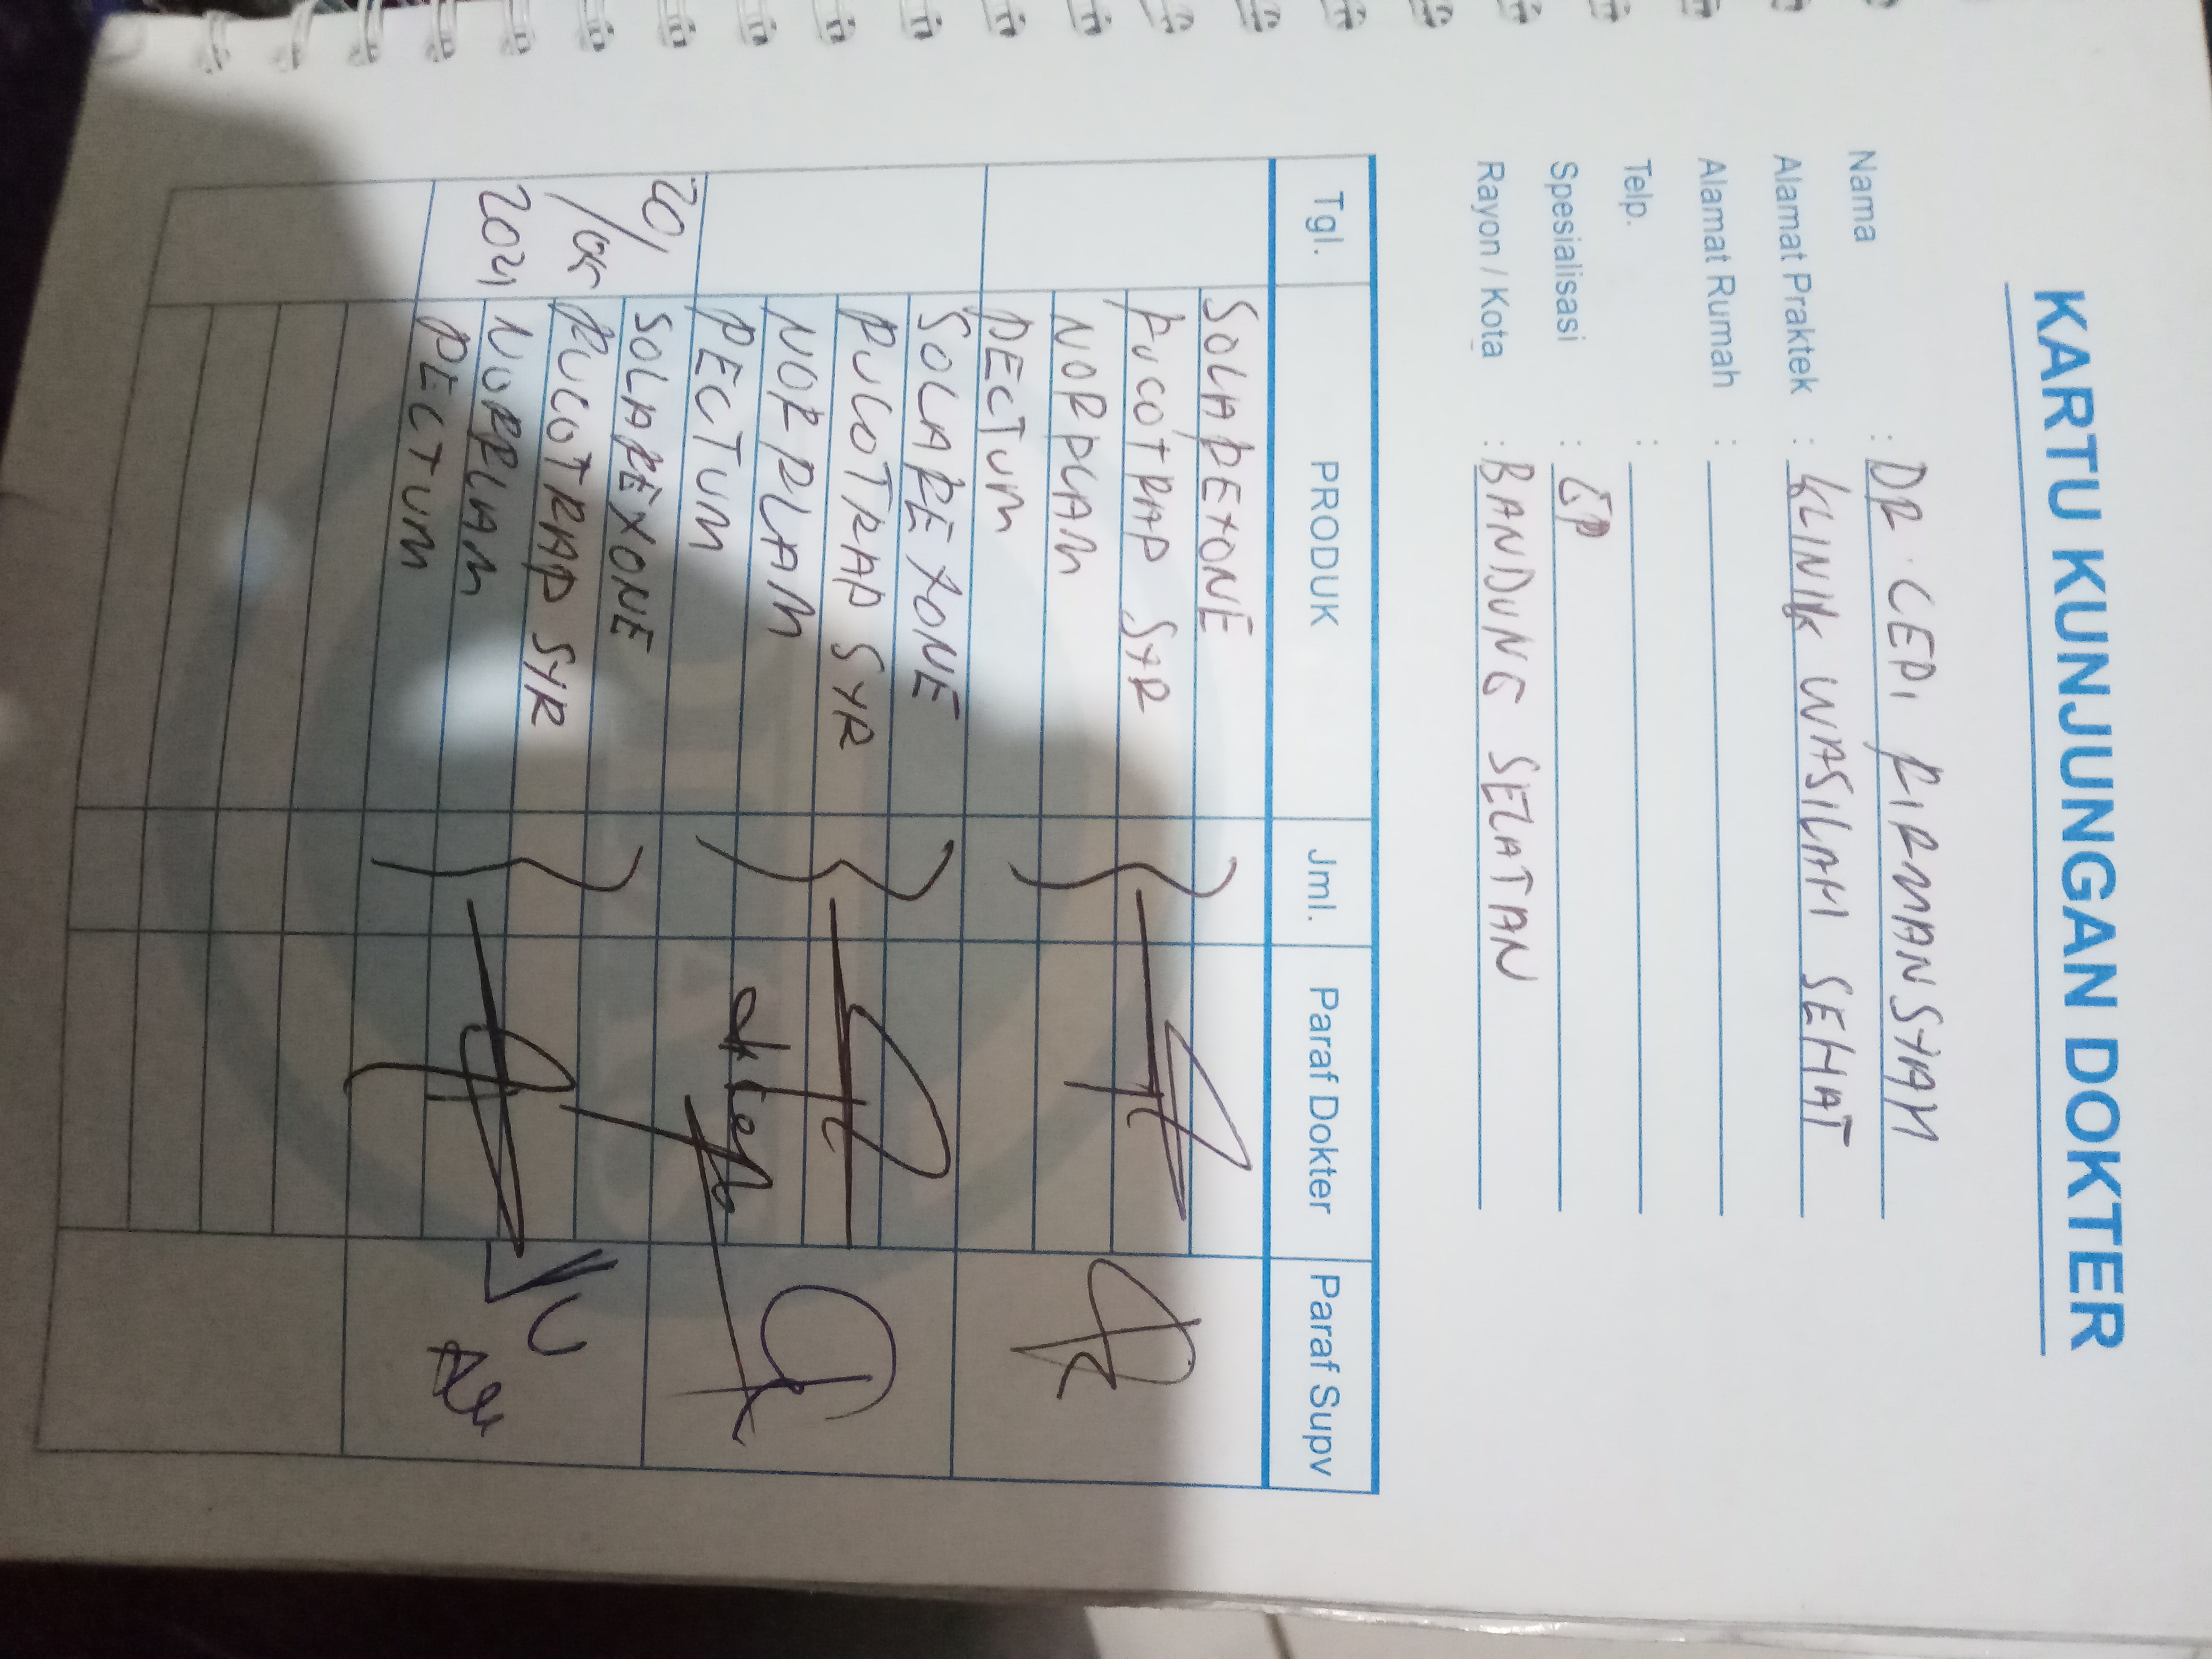 KARTU KUNJUNGAN DOKTER
Nama : DR. CEPI FIRMANSYAH
Alamat Praktek : KLINIK WASILAH SEHAT
Alamat Rumah :
Telp. :
Spesialisasi : GP
Rayon / Kota : BANDUNG SELATAN
Tgl. PRODUK Jml. Paraf Dokter Paraf Supv
SOLAPEXONE
FUCOTRAP SYR
NORPLAM
PECTUM
SOLAPEXONE
FUCOTRAP SYR
NORPLAM
PECTUM
20/05 2021
SOLAPEXONE
FUCOTRAP SYR
NORPLAM
PECTUM